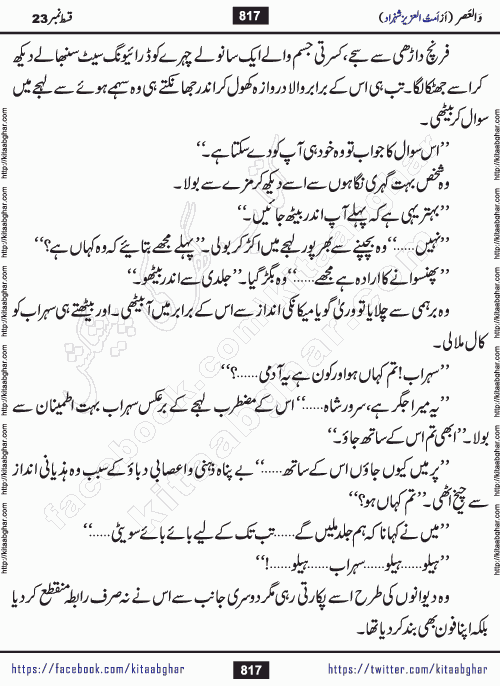 والعصر (از امت العزیز شہزاد)
817
قسط نمبر 23
فرنچ داڑھی سے سجے، کسرتی جسم والے ایک سانولے چہرے کو ڈرائیونگ سیٹ سنبھالے دیکھ
کر اسے جھٹکا لگا۔ تب ہی اس کے برابر والا دروازہ کھول کر اندر جھانکتے ہی وہ سہمے ہوئے سے لہجے میں
سوال کر بیٹھی۔
’’اس سوال کا جواب تو وہ خود ہی آپ کو دے سکتا ہے۔‘‘
وہ شخص بہت گہری نگاہوں سے اسے دیکھ کر مزے سے بولا۔
’’بہتر یہی ہے کہ پہلے آپ اندر بیٹھ جائیں۔‘‘
’’نہیں......‘‘ وہ بچپنے سے بھرپور لہجے میں اکڑ کر بولی۔ ’’پہلے مجھے بتایئے کہ وہ کہاں ہے؟‘‘
’’پھنسوانے کا ارادہ ہے مجھے......‘‘ وہ بگڑ گیا۔ ’’جلدی سے اندر بیٹھو۔‘‘
وہ برہمی سے چلایا تو وریٰ گویا میکانکی انداز سے اس کے برابر میں آ بیٹھی۔ اور بیٹھتے ہی سہراب کو
کال ملا لی۔
’’سہراب! تم کہاں ہو اور کون ہے یہ آدمی......؟‘‘
’’یہ میرا جگر ہے، سرور شاہ......‘‘ اس کے مضطرب لہجے کے برعکس سہراب بہت اطمینان سے
بولا۔ ’’ابھی تم اس کے ساتھ جاؤ۔‘‘
’’پر میں کیوں جاؤں اس کے ساتھ......‘‘ بے پناہ ذہنی و اعصابی دباؤ کے سبب وہ ہذیانی انداز
سے چیخ اٹھی۔ ’’تم کہاں ہو؟‘‘
’’میں نے کہا نا کہ ہم جلد ملیں گے...... تب تک کے لیے بائے بائے سویٹی......‘‘
’’ہیلو...... ہیلو...... سہراب...... ہیلو......!‘‘
وہ دیوانوں کی طرح اسے پکارتی رہی مگر دوسری جانب سے اس نے نہ صرف رابطہ منقطع کر دیا
بلکہ اپنا فون بھی بند کر دیا تھا۔
http://kitaabghar.com http://kitaabghar.com http://kitaabghar.com http://kitaabghar.com http://kitaabghar.com http://kitaabghar.com
http://kitaabghar.com http://kitaabghar.com http://kitaabghar.com http://kitaabghar.com http://kitaabghar.com http://kitaabghar.com
facebook.com/kitaabghar
kitaabghar.com
https://facebook.com/kitaabghar
817
https://twitter.com/kitaabghar